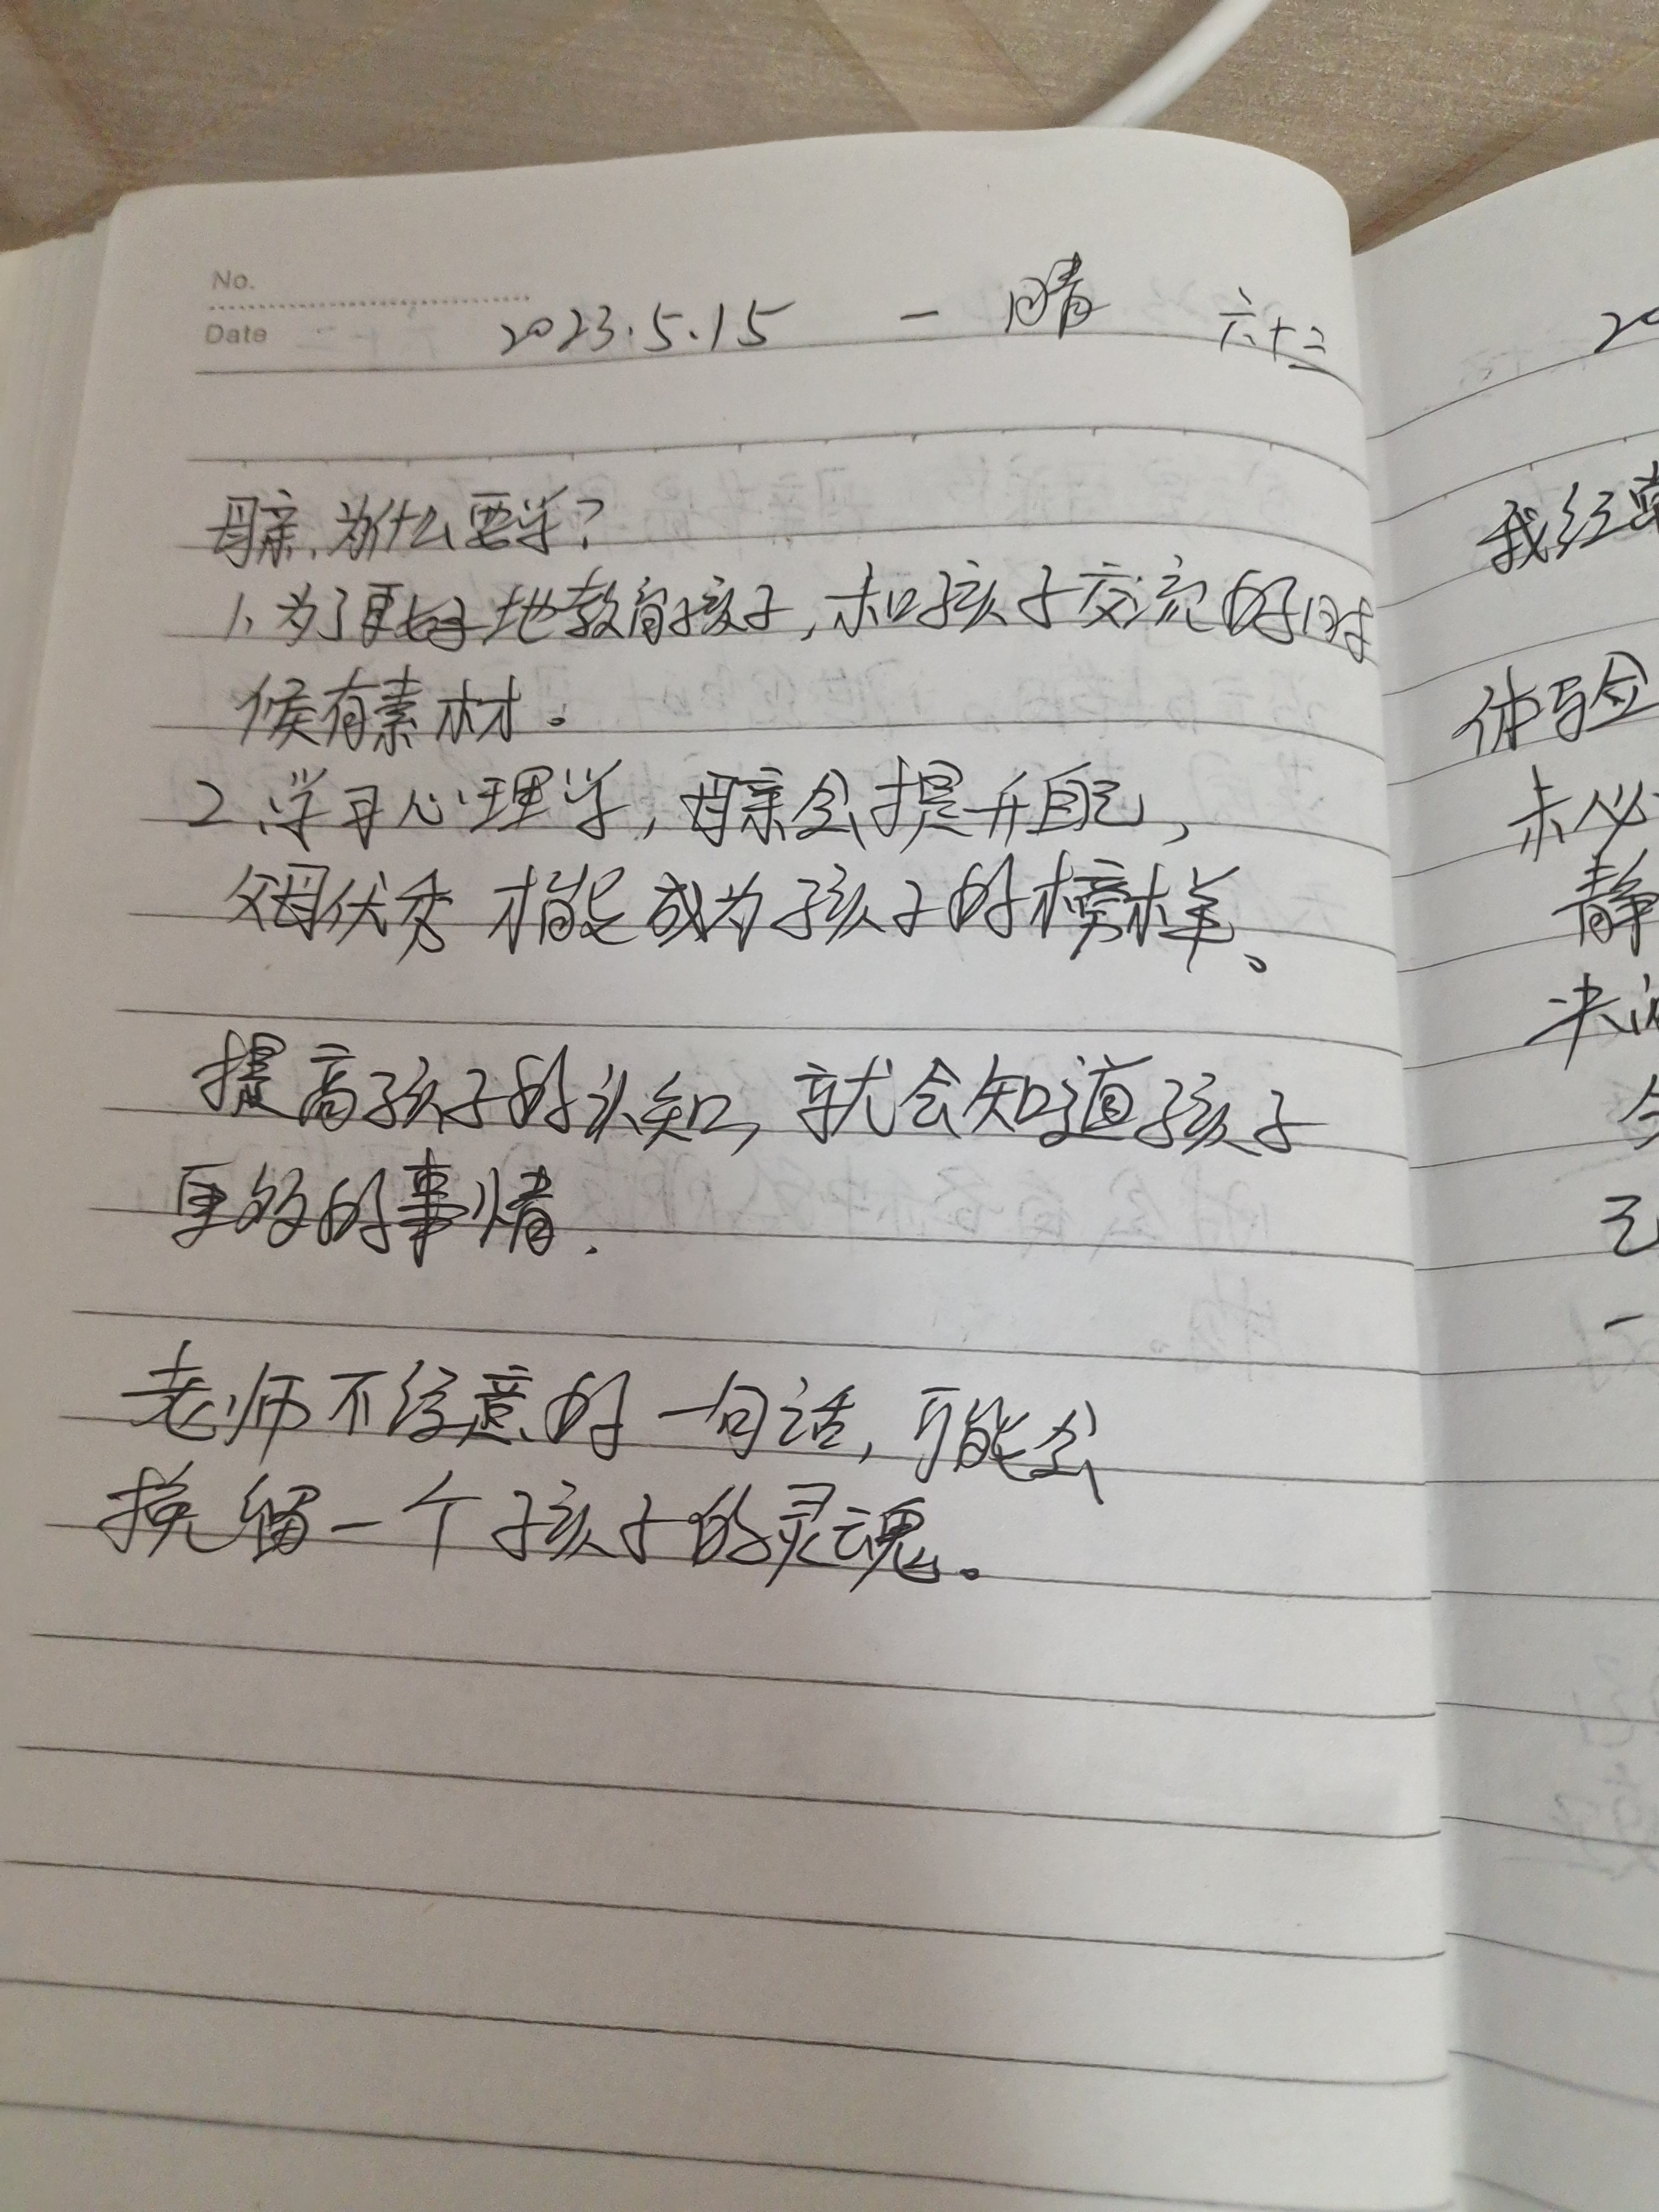 No.
Date 2023.5.15 一 晴 六十二
母亲,为什么要学?
1、为了更好地教育孩子,和孩子交流的时
候有素材。
2、学习心理学,母亲会提升自己,
父母优秀才能成为孩子的榜样。
提高孩子的认知,就会知道孩子
更多的事情.
老师不经意的一句话,可能会
挽留一个孩子的灵魂。
20
我经常
体验
未必
静
来
一